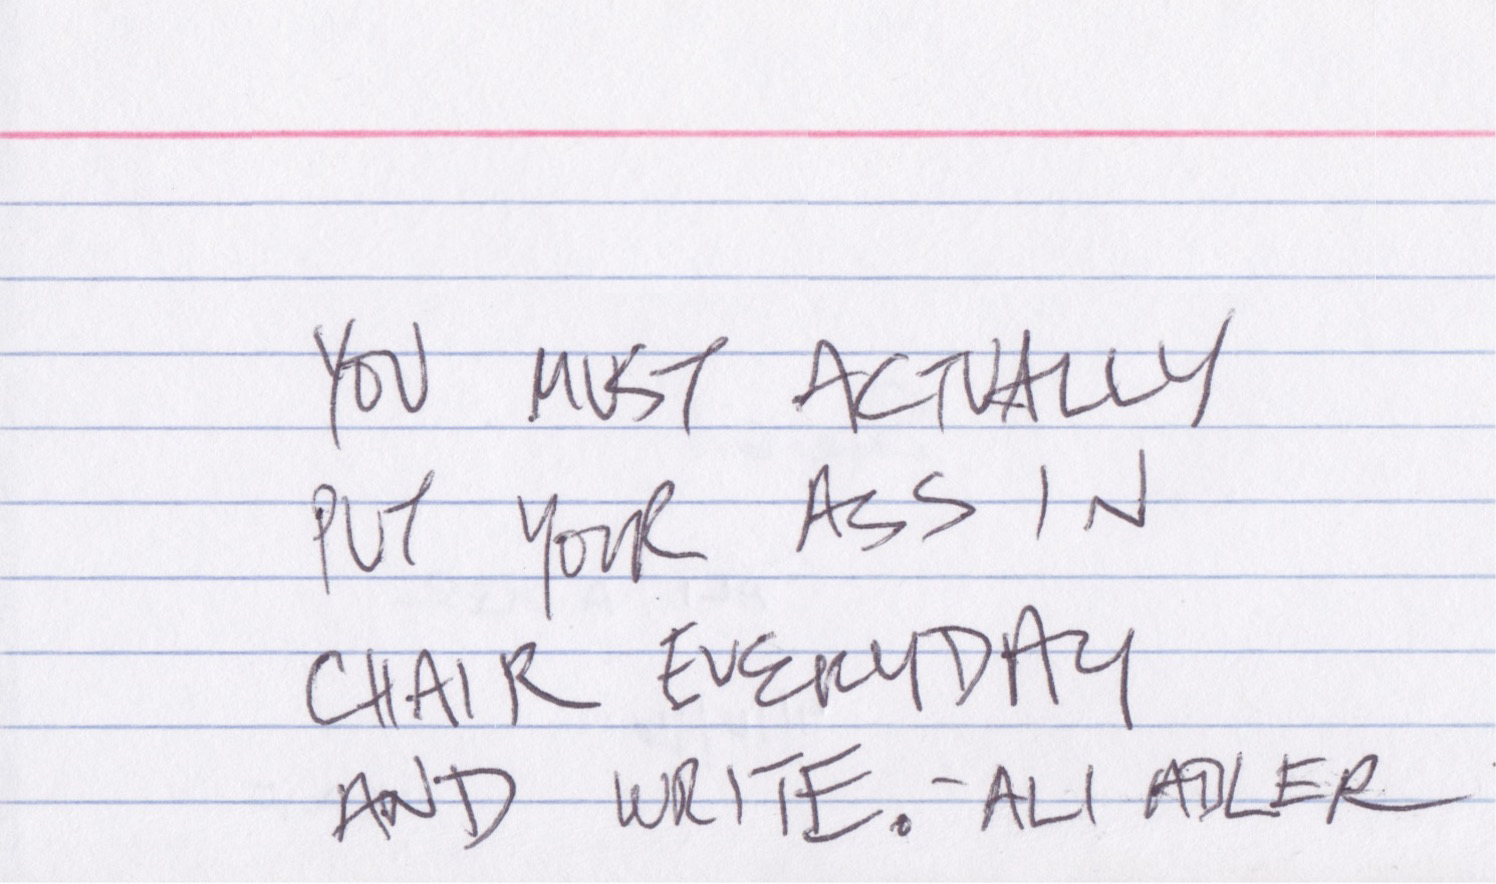 YOU MUST ACTUALLY
PUT YOUR ASS IN
CHAIR EVERYDAY
AND WRITE. - ALI ADLER